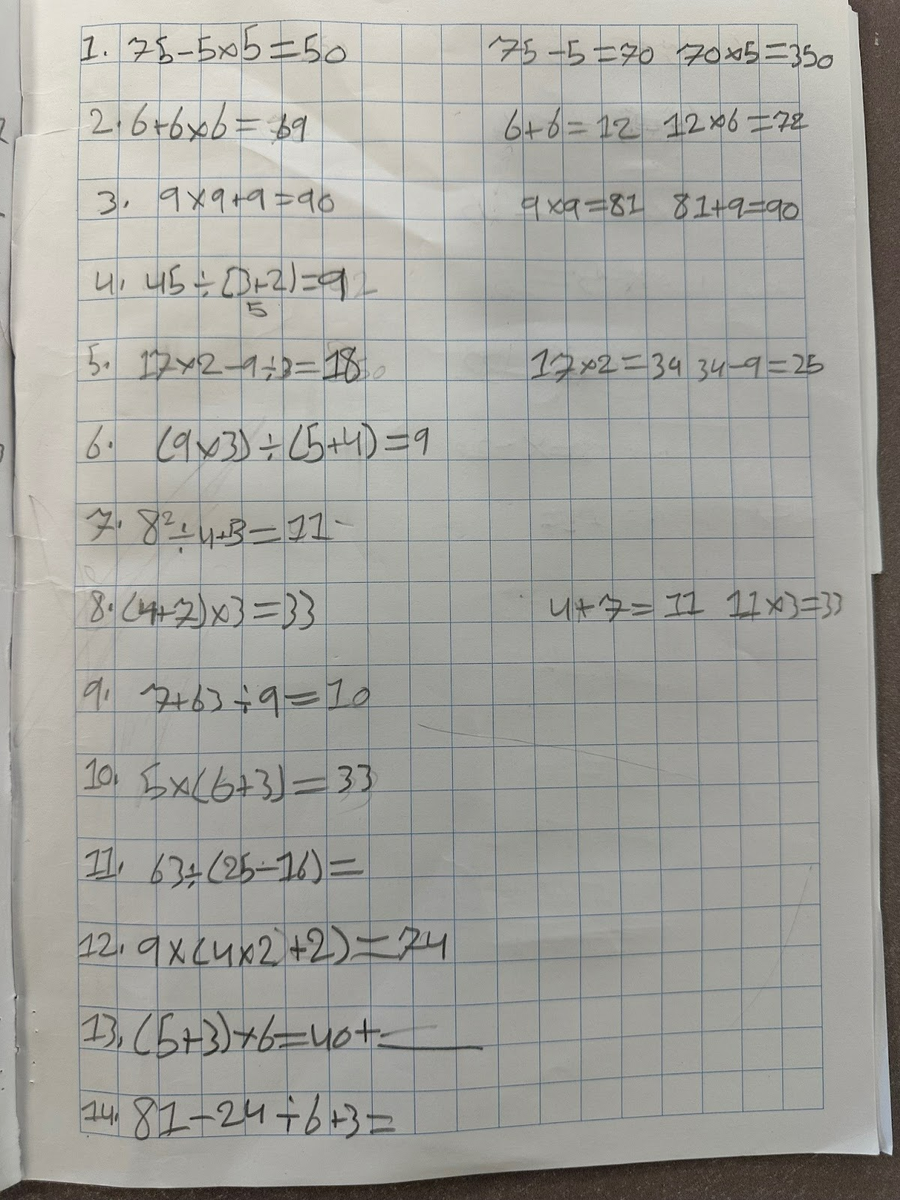 1. 75-5×5=50 75-5=70 70×5=350
2. 6+6×6=69 6+6=12 12×6=72
3. 9×9+9=90 9×9=81 81+9=90
4. 45÷(3+2)=9
5
5. 17×2-9÷3=18 17×2=34 34-9=25
6. (9×3)÷(5+4)=9
7. 8²÷4+3=11
8. (4+7)×3=33 4+7=11 11×3=33
9. 7+63÷9=10
10. 5×(6+3)=33
11. 63÷(25-16)=
12. 9×(4×2+2)=74
13. (5+3)×6=40+___
14. 81-24÷6+3=